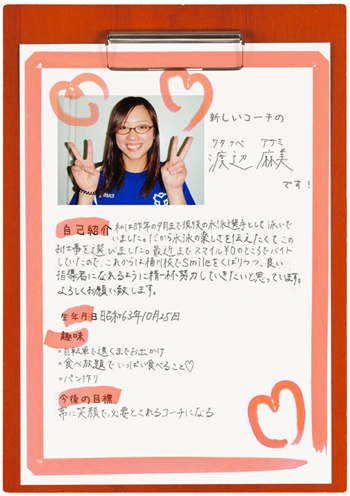 新しいコーチの
ワタナベ アサミ
渡辺 麻美
です!
自己紹介 私は昨年の9月まで現役の水泳選手として泳いで
いました。だから水泳の楽しさを伝えたくてこの
お仕事を選びました。最近までスマイル¥0のところでバイト
していたので、これからは桶川校でSmileをくばりつつ、良い
指導者になれるように精一杯努力していきたいと思っています。
よろしくお願い致します。
生年月日 昭和63年10月25日
趣味
・自転車で遠くまでお出かけ
・食べ放題でいっぱい食べること♡
・パン作り
今後の目標
常に笑顔で必要とされるコーチになる